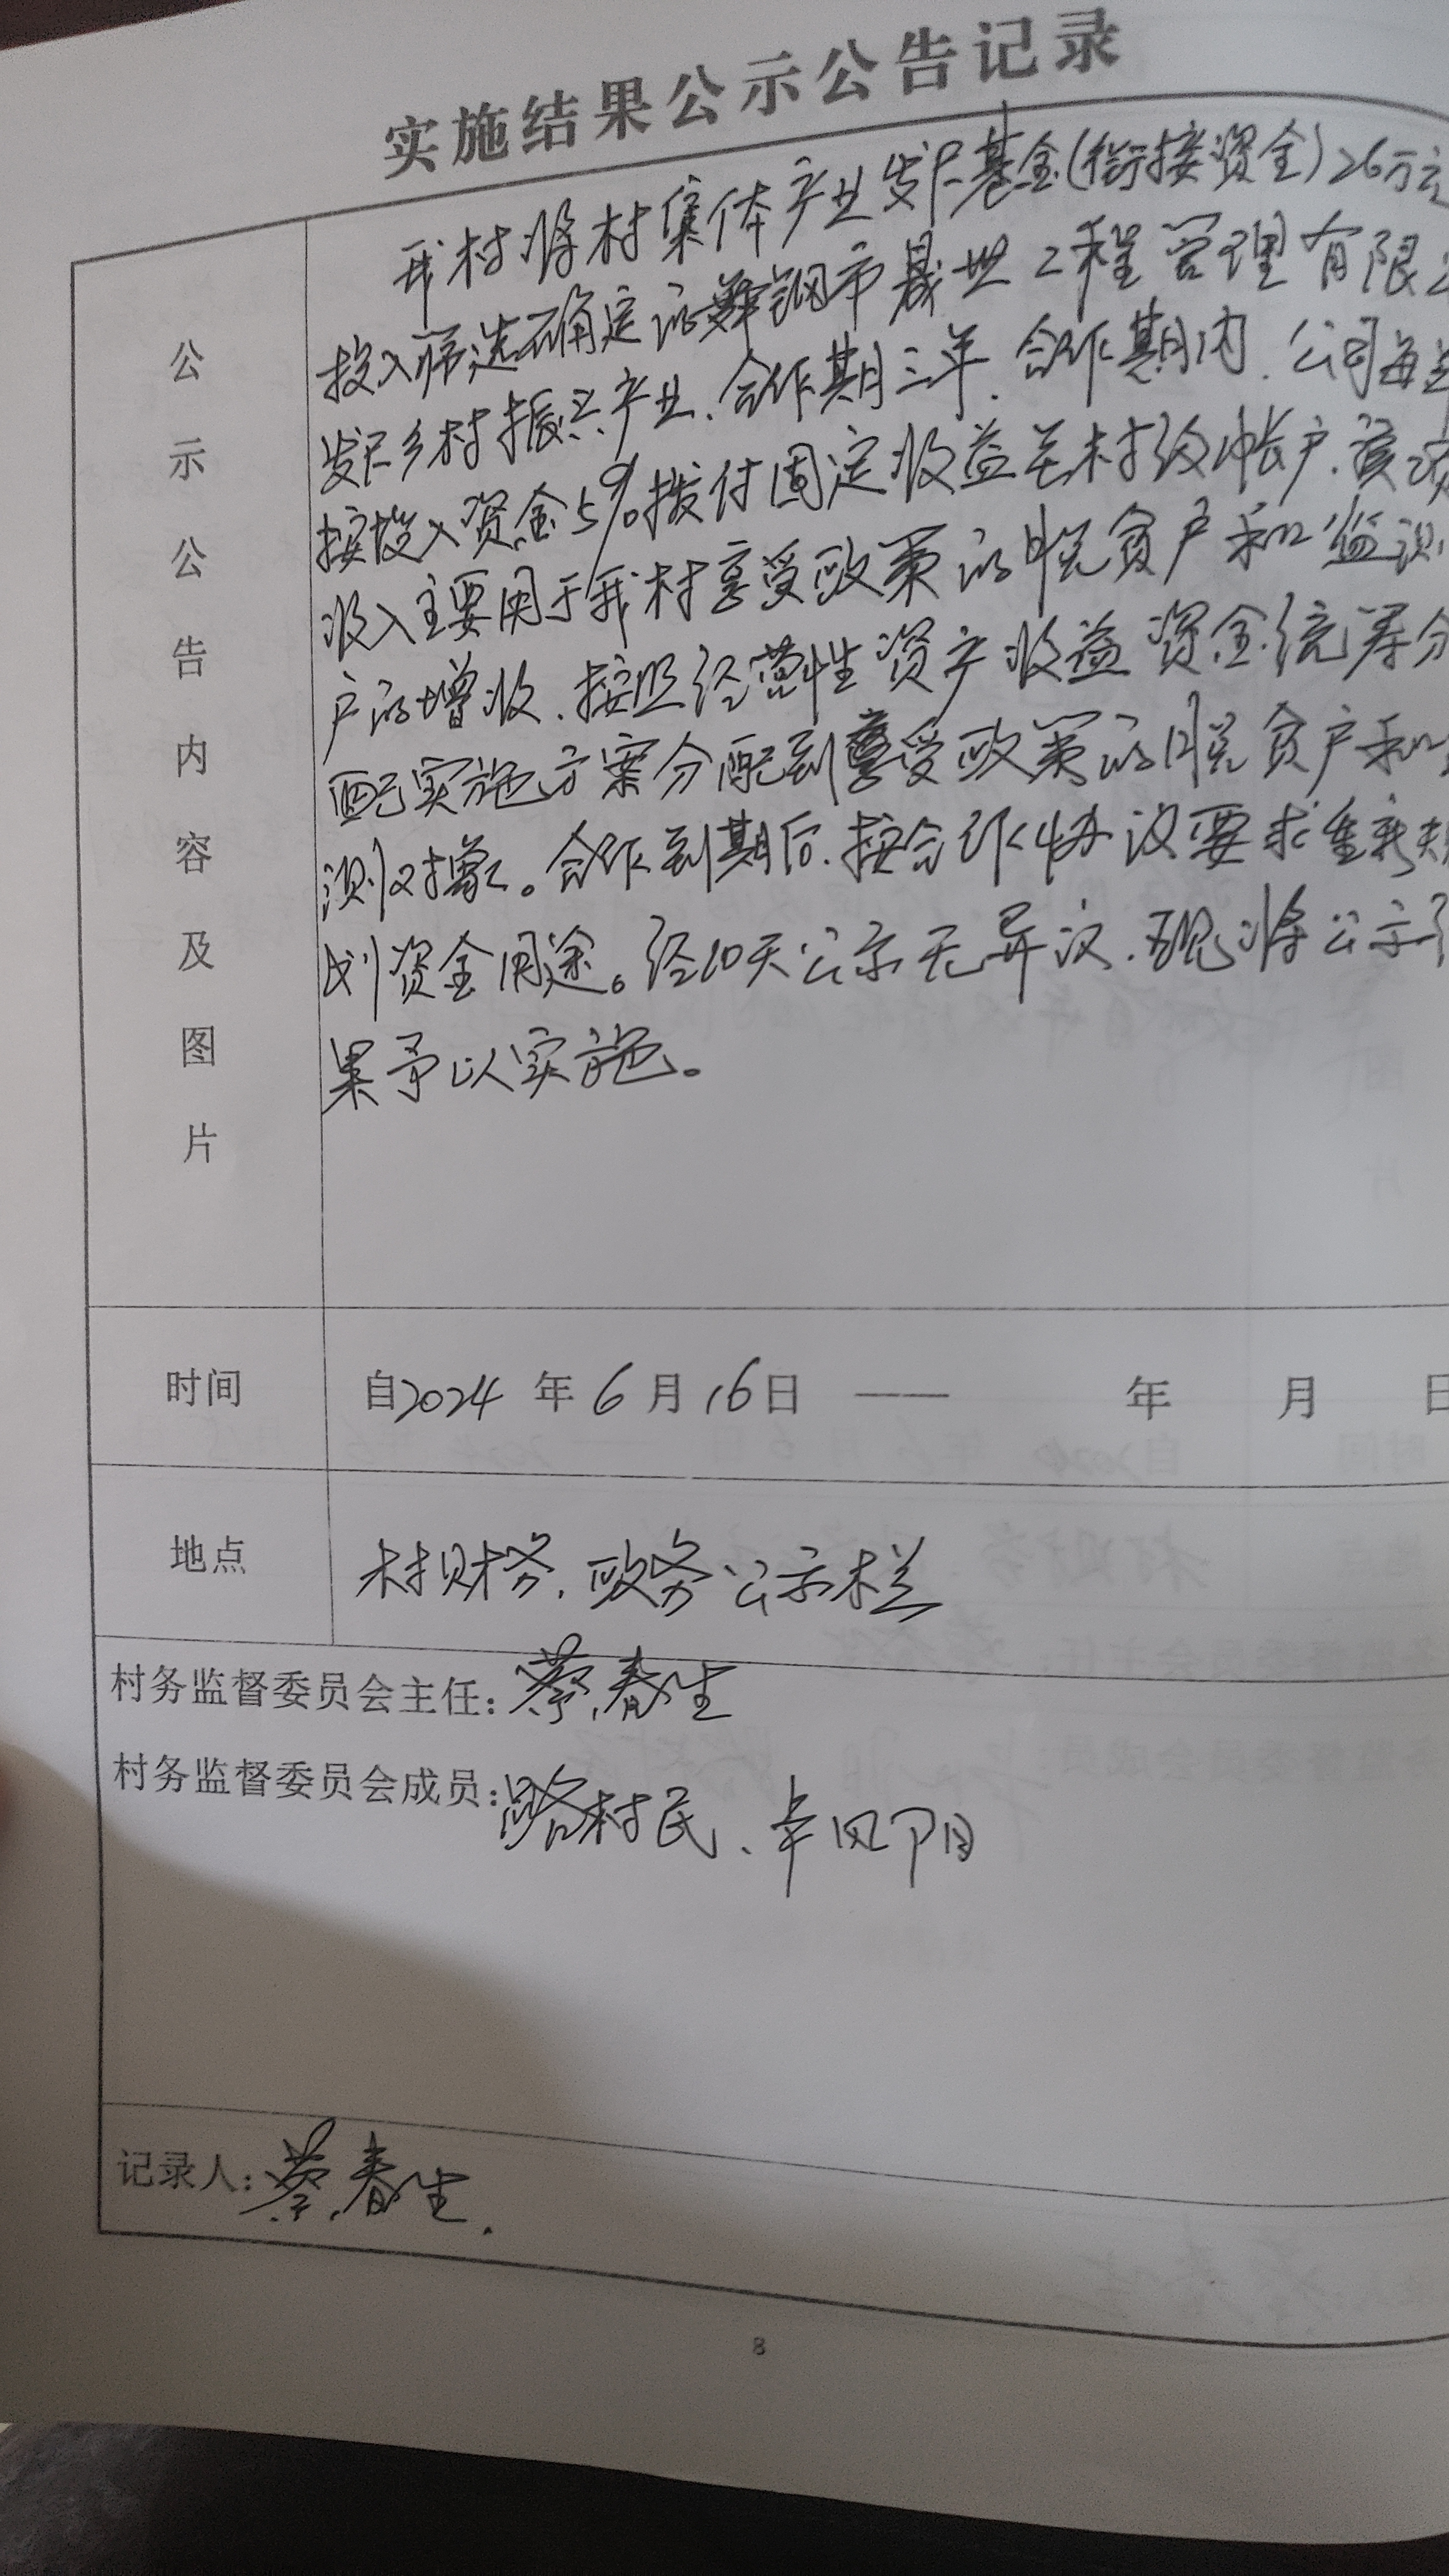 实施结果公示公告记录
公示公告内容及图片
我村将村集体产业发展基金(衔接资金)26万元
投入筛选确定的舞钢市晟世工程管理有限公
发展乡村振兴产业、合作期三年、合作期内、公司每
按投入资金5%拨付固定收益至村级帐户、资
收入主要用于我村享受政策的脱贫户和监测
户的增收、按照经营性资产收益资金统筹分
配实施方案分配到享受政策的脱贫户和
测对象。合作到期后、按合作协议要求重新规
划资金用途。经10天公示无异议、现将公示
果予以实施。
时间 自2024年6月16日 —— 年 月 日
地点 村财务、政务公示栏
村务监督委员会主任:蔡春生
村务监督委员会成员:路村民、
记录人:蔡春生.
8